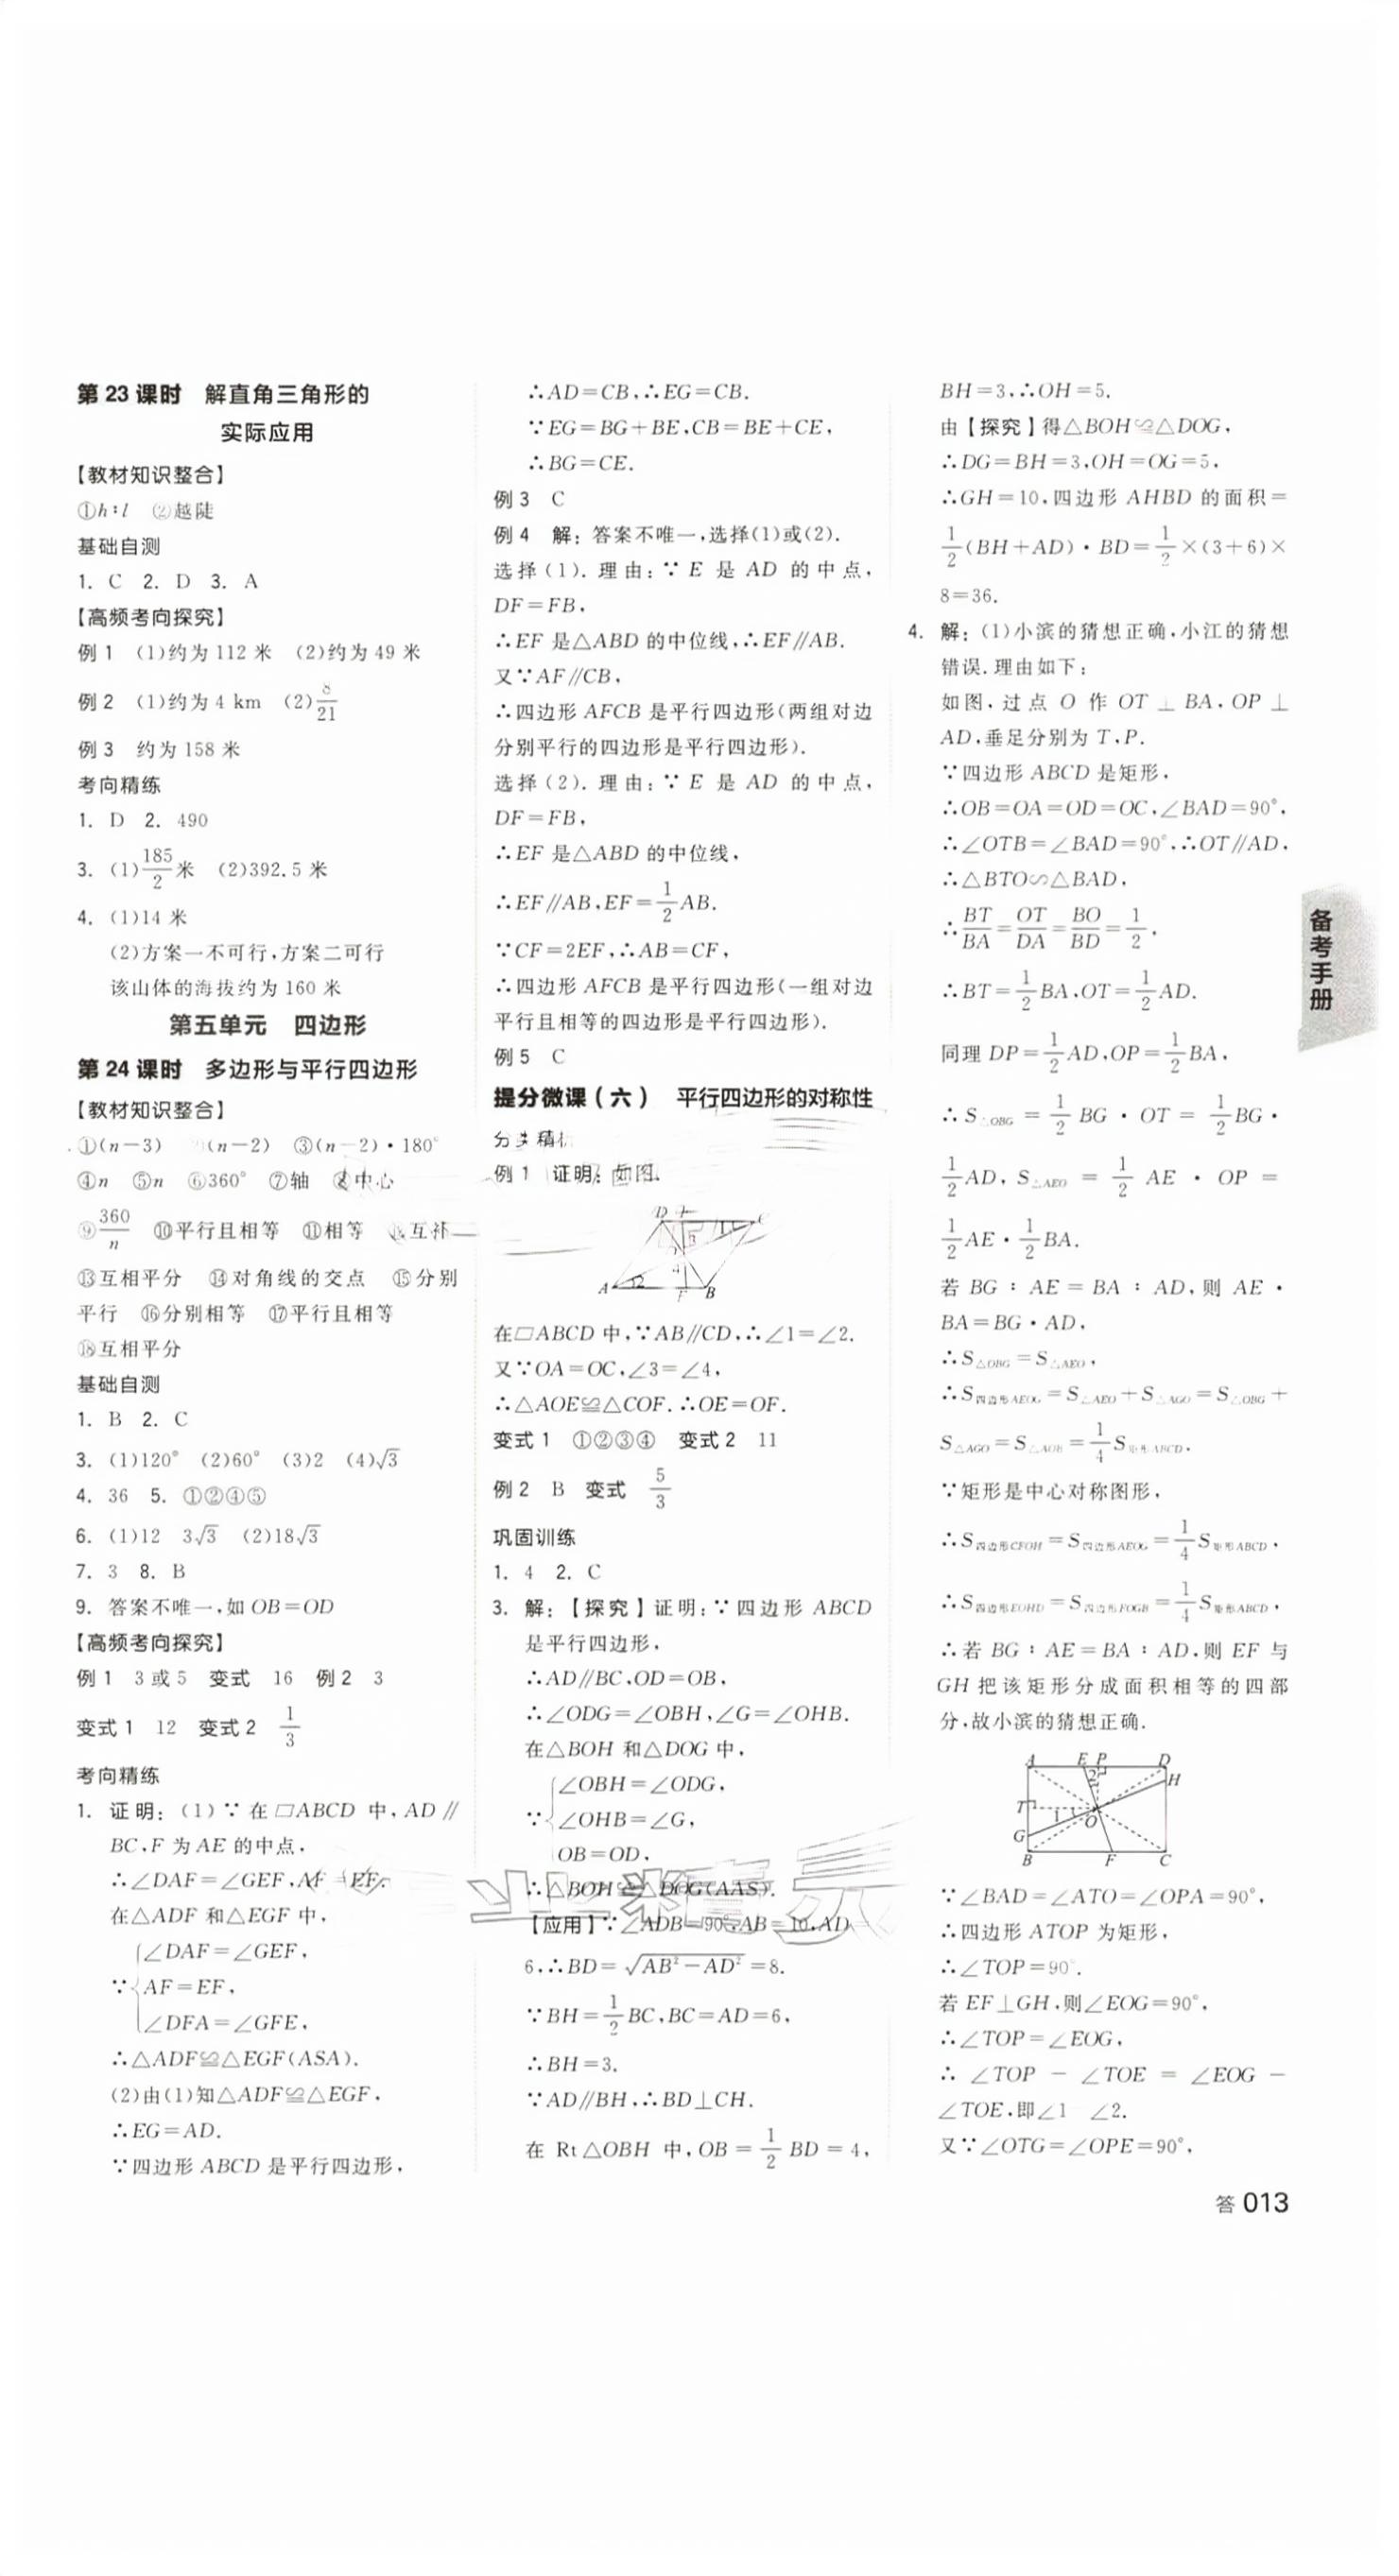 第 23 课时 解直角三角形的
实际应用
【教材知识整合】
①h∶l ②越陡
基础自测
1. C 2. D 3. A
【高频考向探究】
例 1 (1)约为 112 米 (2)约为 49 米
例 2 (1)约为 4 km (2)8/21
例 3 约为 158 米
考向精练
1. D 2. 490
3. (1)185/2米 (2)392.5 米
4. (1)14 米
(2)方案一不可行,方案二可行
该山体的海拔约为 160 米
第五单元 四边形
第 24 课时 多边形与平行四边形
【教材知识整合】
①(n－3) (n－2) ③(n－2)・180°
④n ⑤n ⑥360° ⑦轴 中心
⑨360/n ⑩平行且相等 ⑪相等 互补
⑬互相平分 ⑭对角线的交点 ⑮分别
平行 ⑯分别相等 ⑰平行且相等
⑱互相平分
基础自测
1. B 2. C
3. (1)120° (2)60° (3)2 (4)√3
4. 36 5. ①②④⑤
6. (1)12 3√3 (2)18√3
7. 3 8. B
9. 答案不唯一,如 OB＝OD
【高频考向探究】
例 1 3 或 5 变式 16 例 2 3
变式 1 12 变式 2 1/3
考向精练
1. 证明:(1)∵在▱ABCD 中,AD∥
BC,F 为 AE 的中点,
∴∠DAF＝∠GEF,AF＝EF.
在△ADF 和△EGF 中,
∠DAF＝∠GEF,
∵ AF＝EF,
∠DFA＝∠GFE,
∴△ADF≌△EGF(ASA).
(2)由(1)知△ADF≌△EGF,
∴EG＝AD.
∵四边形 ABCD 是平行四边形,
∴AD＝CB,∴EG＝CB.
∵EG＝BG＋BE,CB＝BE＋CE,
∴BG＝CE.
例 3 C
例 4 解:答案不唯一,选择(1)或(2).
选择(1).理由:∵E 是 AD 的中点,
DF＝FB,
∴EF 是△ABD 的中位线,∴EF∥AB.
又∵AF∥CB,
∴四边形 AFCB 是平行四边形(两组对边
分别平行的四边形是平行四边形).
选择(2).理由:∵E 是 AD 的中点,
DF＝FB,
∴EF 是△ABD 的中位线,
∴EF∥AB,EF＝1/2AB.
∵CF＝2EF,∴AB＝CF,
∴四边形 AFCB 是平行四边形(一组对边
平行且相等的四边形是平行四边形).
例 5 C
提分微课(六) 平行四边形的对称性
分类精
例 1 证明:如图.
D
A 2 F B
在▱ABCD 中,∵AB∥CD,∴∠1＝∠2.
又∵OA＝OC,∠3＝∠4,
∴△AOE≌△COF.∴OE＝OF.
变式 1 ①②③④ 变式 2 11
例 2 B 变式 5/3
巩固训练
1. 4 2. C
3. 解:【探究】证明:∵四边形 ABCD
是平行四边形,
∴AD∥BC,OD＝OB,
∴∠ODG＝∠OBH,∠G＝∠OHB.
在△BOH 和△DOG 中,
∠OBH＝∠ODG,
∵ ∠OHB＝∠G,
OB＝OD,
∴△BOH≌△DOG(AAS).
【应用】∵∠ADB＝90°,AB＝10,AD＝
6,∴BD＝√(AB²－AD²)＝8.
∵BH＝1/2BC,BC＝AD＝6,
∴BH＝3.
∵AD∥BH,∴BD⊥CH.
在 Rt△OBH 中,OB＝1/2BD＝4,
BH＝3,∴OH＝5.
由【探究】得△BOH≌△DOG,
∴DG＝BH＝3,OH＝OG＝5,
∴GH＝10,四边形 AHBD 的面积＝
1/2(BH＋AD)・BD＝1/2×(3＋6)×
8＝36.
4. 解:(1)小滨的猜想正确,小江的猜想
错误.理由如下:
如图,过点 O 作 OT⊥BA,OP⊥
AD,垂足分别为 T,P.
∵四边形 ABCD 是矩形,
∴OB＝OA＝OD＝OC,∠BAD＝90°,
∴∠OTB＝∠BAD＝90°,∴OT∥AD,
∴△BTO∽△BAD,
∴BT/BA＝OT/DA＝BO/BD＝1/2,
∴BT＝1/2BA,OT＝1/2AD.
同理 DP＝1/2AD,OP＝1/2BA,
∴S△OBG＝1/2BG・OT＝1/2BG・
1/2AD,S△AEO＝1/2AE・OP＝
1/2AE・1/2BA.
若 BG∶AE＝BA∶AD,则 AE・
BA＝BG・AD,
∴S△OBG＝S△AEO,
∴S四边形AEOG＝S△AEO＋S△AGO＝S△OBG＋
S△AGO＝S△AOB＝1/4S矩形ABCD.
∵矩形是中心对称图形,
∴S四边形CFOH＝S四边形AEOG＝1/4S矩形ABCD,
∴S四边形EOHD＝S四边形FOGB＝1/4S矩形ABCD,
∴若 BG∶AE＝BA∶AD,则 EF 与
GH 把该矩形分成面积相等的四部
分,故小滨的猜想正确.
A E P D
2 H
T 1 O
G
B F C
∵∠BAD＝∠ATO＝∠OPA＝90°,
∴四边形 ATOP 为矩形,
∴∠TOP＝90°.
若 EF⊥GH,则∠EOG＝90°,
∴∠TOP＝∠EOG,
∴∠TOP－∠TOE＝∠EOG－
∠TOE,即∠1 ∠2.
又∵∠OTG＝∠OPE＝90°,
备考手册
答 013